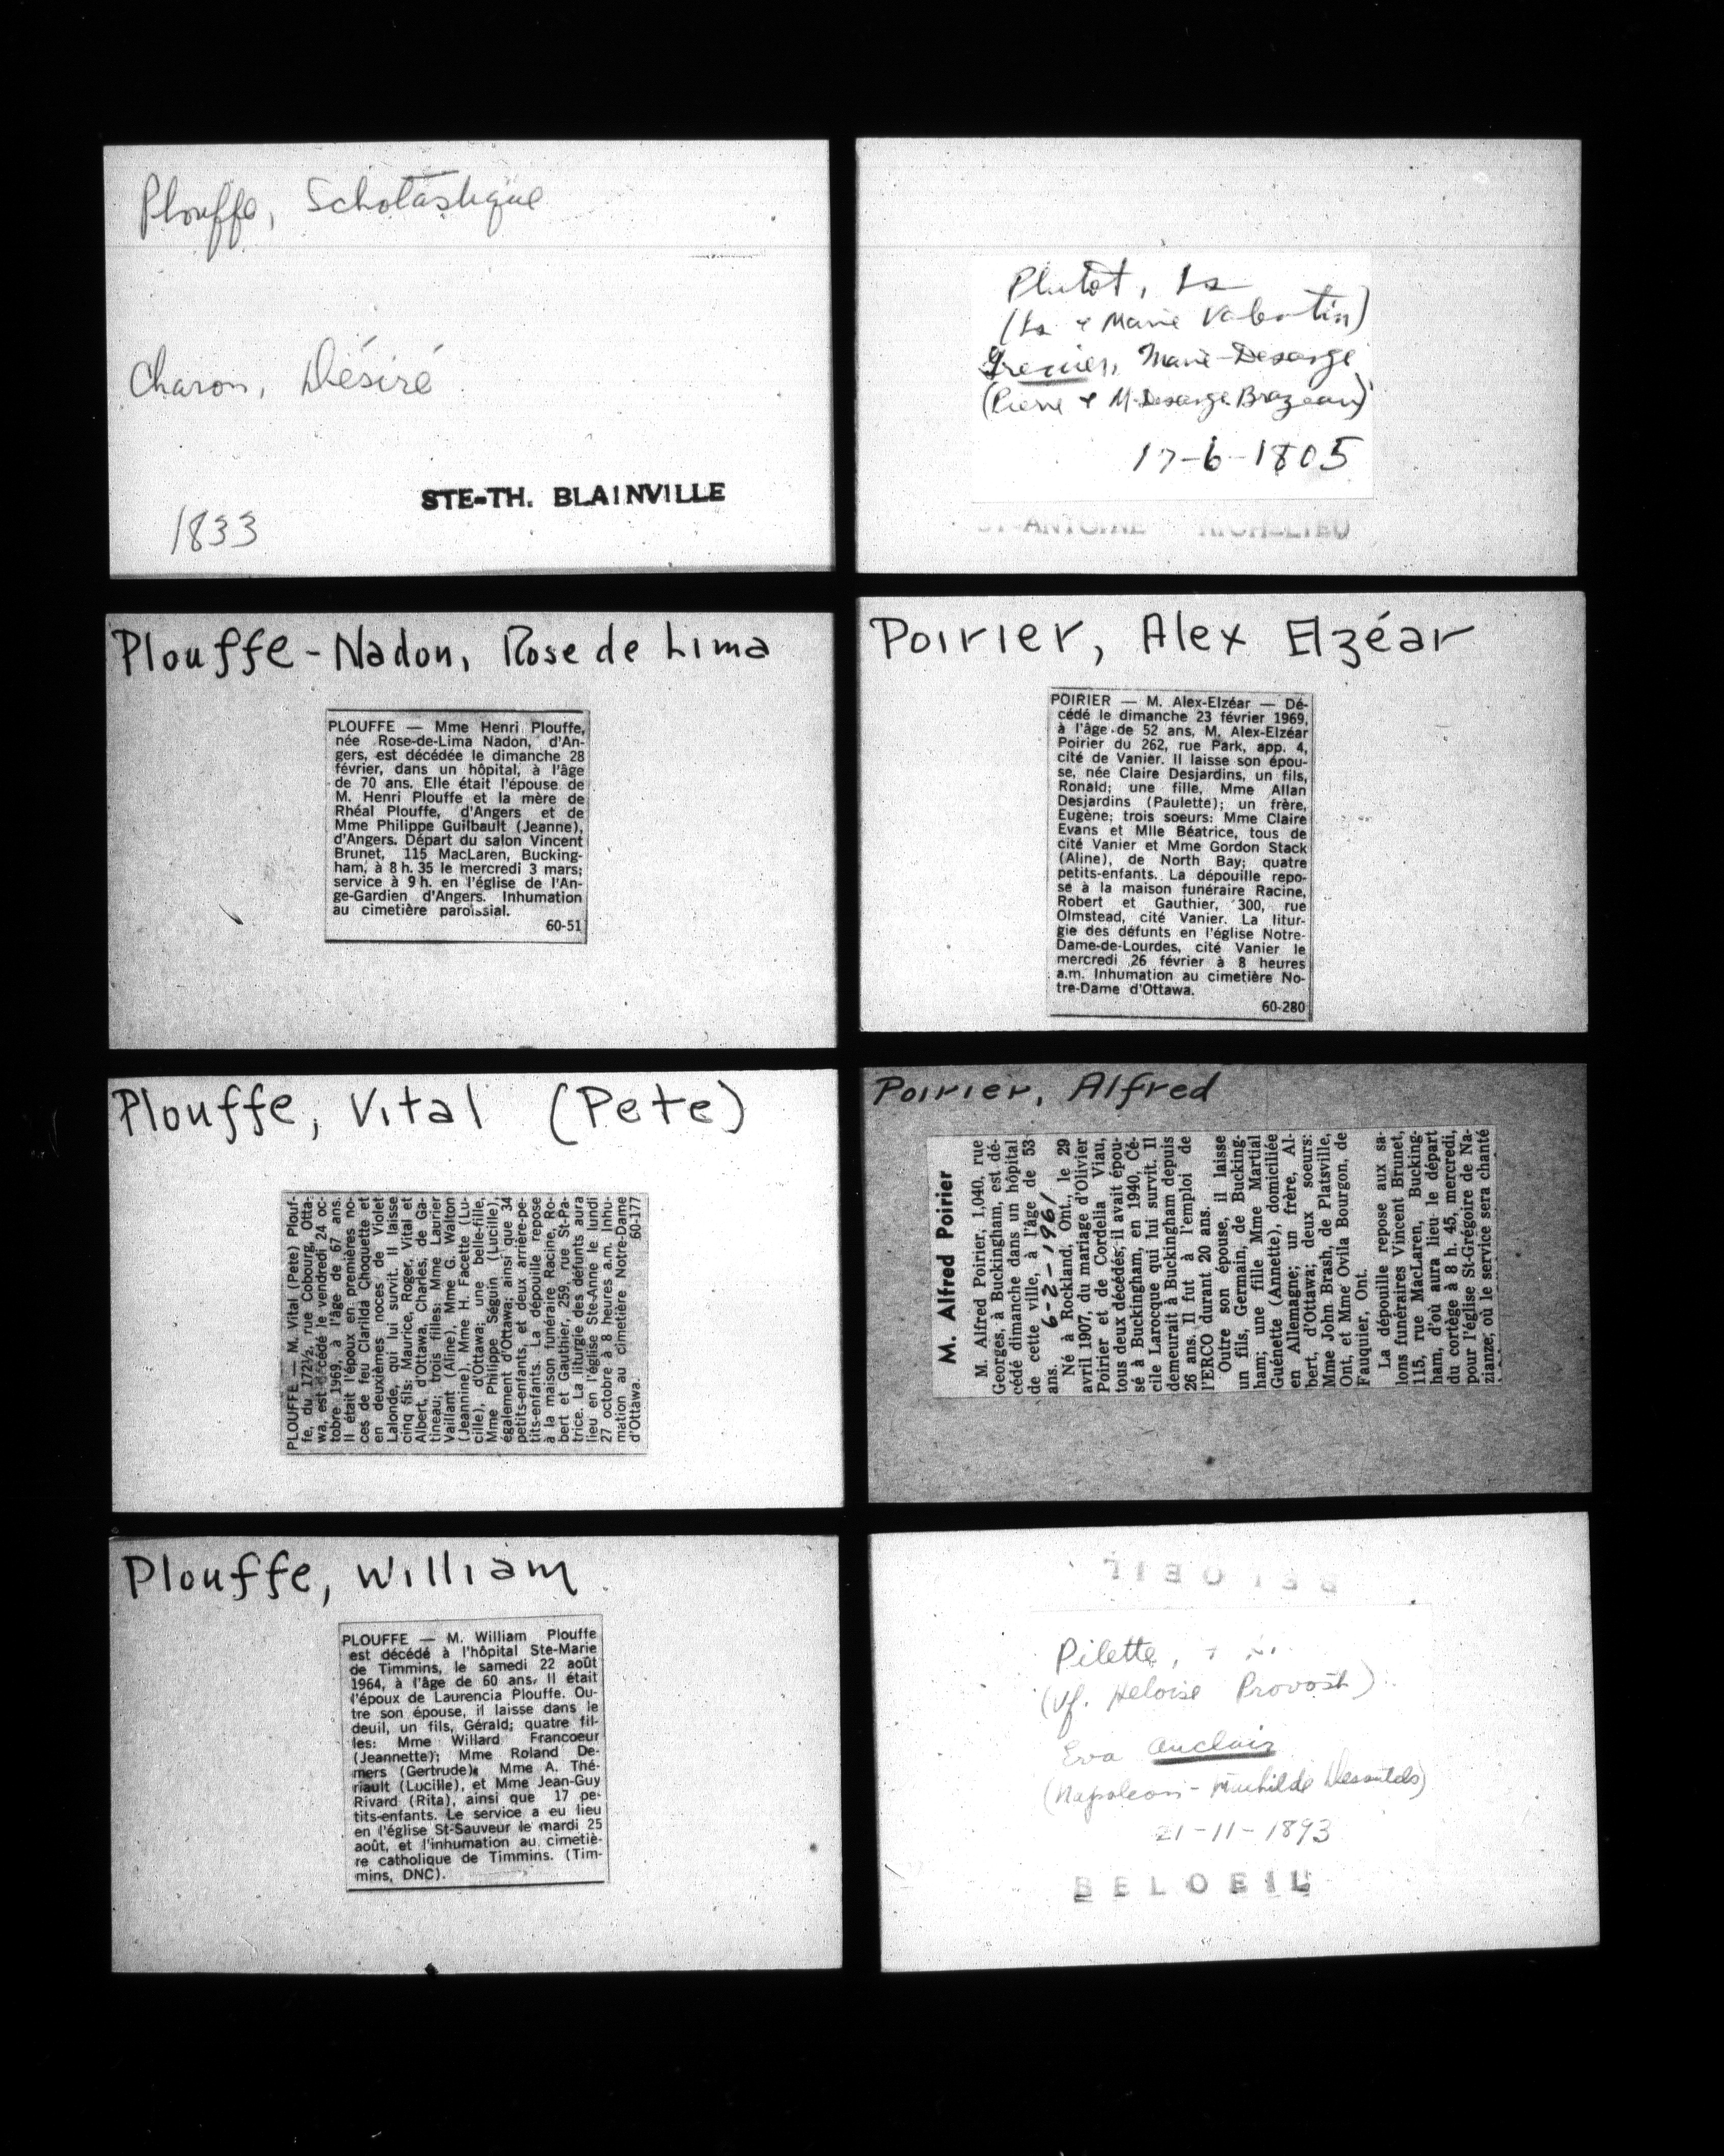 Plouffe, Scholastique
Charon, Désiré
1833
STE-TH. BLAINVILLE
Plouffe-Nadon, Rose de Lima
PLOUFFE — Mme Henri Plouffe,
née Rose-de-Lima Nadon, d'An-
gers, est décédée le dimanche 28
février, dans un hôpital, à l'âge
de 70 ans. Elle était l'épouse de
M. Henri Plouffe et la mère de
Rhéal Plouffe, d'Angers et de
Mme Philippe Guilbault (Jeanne),
d'Angers. Départ du salon Vincent
Brunet, 115 MacLaren, Bucking-
ham, à 8 h. 35 le mercredi 3 mars;
service à 9 h. en l'église de l'An-
ge-Gardien d'Angers. Inhumation
au cimetière paroissial.
60-51
Plouffe, Vital (Pete)
PLOUFFE — M. Vital (Pete) Plouf-
fe, du 172½, rue Cobourg, Otta-
wa, est décédé le vendredi 24 oc-
tobre 1969, à l'âge de 67 ans.
Il était l'époux en premières no-
ces de feu Clarilda Choquette et
en deuxièmes noces de Violet
Lalonde, qui lui survit. Il laisse
cinq fils: Maurice, Roger, Vital et
Albert, d'Ottawa, Charles, de Ga-
tineau; trois filles: Mme Laurier
Vaillant (Aline), Mme G. Walton
(Jeannine), Mme H. Facette (Lu-
cille), d'Ottawa; une belle-fille,
Mme Philippe Séguin (Lucille),
également d'Ottawa; ainsi que 34
petits-enfants, et deux arrière-pe-
tits-enfants. La dépouille repose
à la maison funéraire Racine, Ro-
bert et Gauthier, 259, rue St-Pa-
trice. La liturgie des défunts aura
lieu en l'église Ste-Anne le lundi
27 octobre à 8 heures a.m. Inhu-
mation au cimetière Notre-Dame
d'Ottawa. 60-177
Plouffe, William
PLOUFFE — M. William Plouffe
est décédé à l'hôpital Ste-Marie
de Timmins, le samedi 22 août
1964, à l'âge de 60 ans. Il était
l'époux de Laurencia Plouffe. Ou-
tre son épouse, il laisse dans le
deuil, un fils, Gérald; quatre fil-
les: Mme Willard Francoeur
(Jeannette); Mme Roland De-
mers (Gertrude); Mme A. Thé-
riault (Lucille), et Mme Jean-Guy
Rivard (Rita), ainsi que 17 pe-
tits-enfants. Le service a eu lieu
en l'église St-Sauveur le mardi 25
août, et l'inhumation au cimetiè-
re catholique de Timmins. (Tim-
mins, DNC).
Plutôt, Ls
(Ls & Marie Valentin)
Grenier, Marie-Desange
(Pierre & M-Desange Brazeau)
17-6-1805
ST-ANTOINE RICHELIEU
Poirier, Alex Elzéar
POIRIER — M. Alex-Elzéar — Dé-
cédé le dimanche 23 février 1969,
à l'âge de 52 ans, M. Alex-Elzéar
Poirier du 262, rue Park, app. 4,
cité de Vanier. Il laisse son épou-
se, née Claire Desjardins, un fils,
Ronald; une fille, Mme Allan
Desjardins (Paulette); un frère,
Eugène; trois soeurs: Mme Claire
Evans et Mlle Béatrice, tous de
cité Vanier et Mme Gordon Stack
(Aline), de North Bay; quatre
petits-enfants. La dépouille repo-
se à la maison funéraire Racine,
Robert et Gauthier, 300, rue
Olmstead, cité Vanier. La litur-
gie des défunts en l'église Notre-
Dame-de-Lourdes, cité Vanier le
mercredi 26 février à 8 heures
a.m. Inhumation au cimetière No-
tre-Dame d'Ottawa.
60-280
Poirier, Alfred
M. Alfred Poirier
M. Alfred Poirier, 1,040, rue
Georges, à Buckingham, est dé-
cédé dimanche dans un hôpital
de cette ville, à l'âge de 53
ans. 6-2-1961
Né à Rockland, Ont., le 29
avril 1907, du mariage d'Olivier
Poirier et de Cordelia Viau,
tous deux décédés, il avait épou-
sé à Buckingham, en 1940, Cé-
cile Larocque qui lui survit. Il
demeurait à Buckingham depuis
26 ans. Il fut à l'emploi de
l'ERCO durant 20 ans.
Outre son épouse, il laisse
un fils, Germain, de Bucking-
ham; une fille Mme Martial
Guénette (Annette), domiciliée
en Allemagne; un frère, Al-
bert, d'Ottawa; deux soeurs:
Mme John Brash, de Platsville,
Ont, et Mme Ovila Bourgon, de
Fauquier, Ont.
La dépouille repose aux sa-
lons funéraires Vincent Brunet,
115, rue MacLaren, Bucking-
ham, d'où aura lieu le départ
du cortège à 8 h. 45, mercredi,
pour l'église St-Grégoire de Na-
zianze, où le service sera chanté
BELOEIL
Pilette,
(Vf. Heloise Provost)
Eva Auclair
(Napoleon - Mathilde Desautels)
21-11-1893
BELOEIL